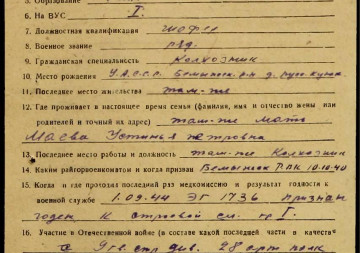 5. Образование
6. На ВУС I.
7. Должностная квалификация шофер
8. Военное звание ряд.
9. Гражданская специальность Колхозник
10. Место рождения У.А.С.С.Р. р-н д.
11. Последнее место жительства там-же
12. Где проживает в настоящее время семья (фамилия, имя и отчество жены или
родителей и точный их адрес) там-же мать
Маева Устинья Петровна
13. Последнее место работы и должность там-же Колхозник
14. Каким райгорвоенкоматом и когда призван РВК 10.10.40
15. Когда и где проходил последний раз медкомиссию и результат годности к
военной службе 1.09.44 ЭГ 1736 признан
годен к строевой сл. гр I.
16. Участие в Отечественной войне (в составе какой последней части в качестве
9 гв. стр. див. 28 арт полк